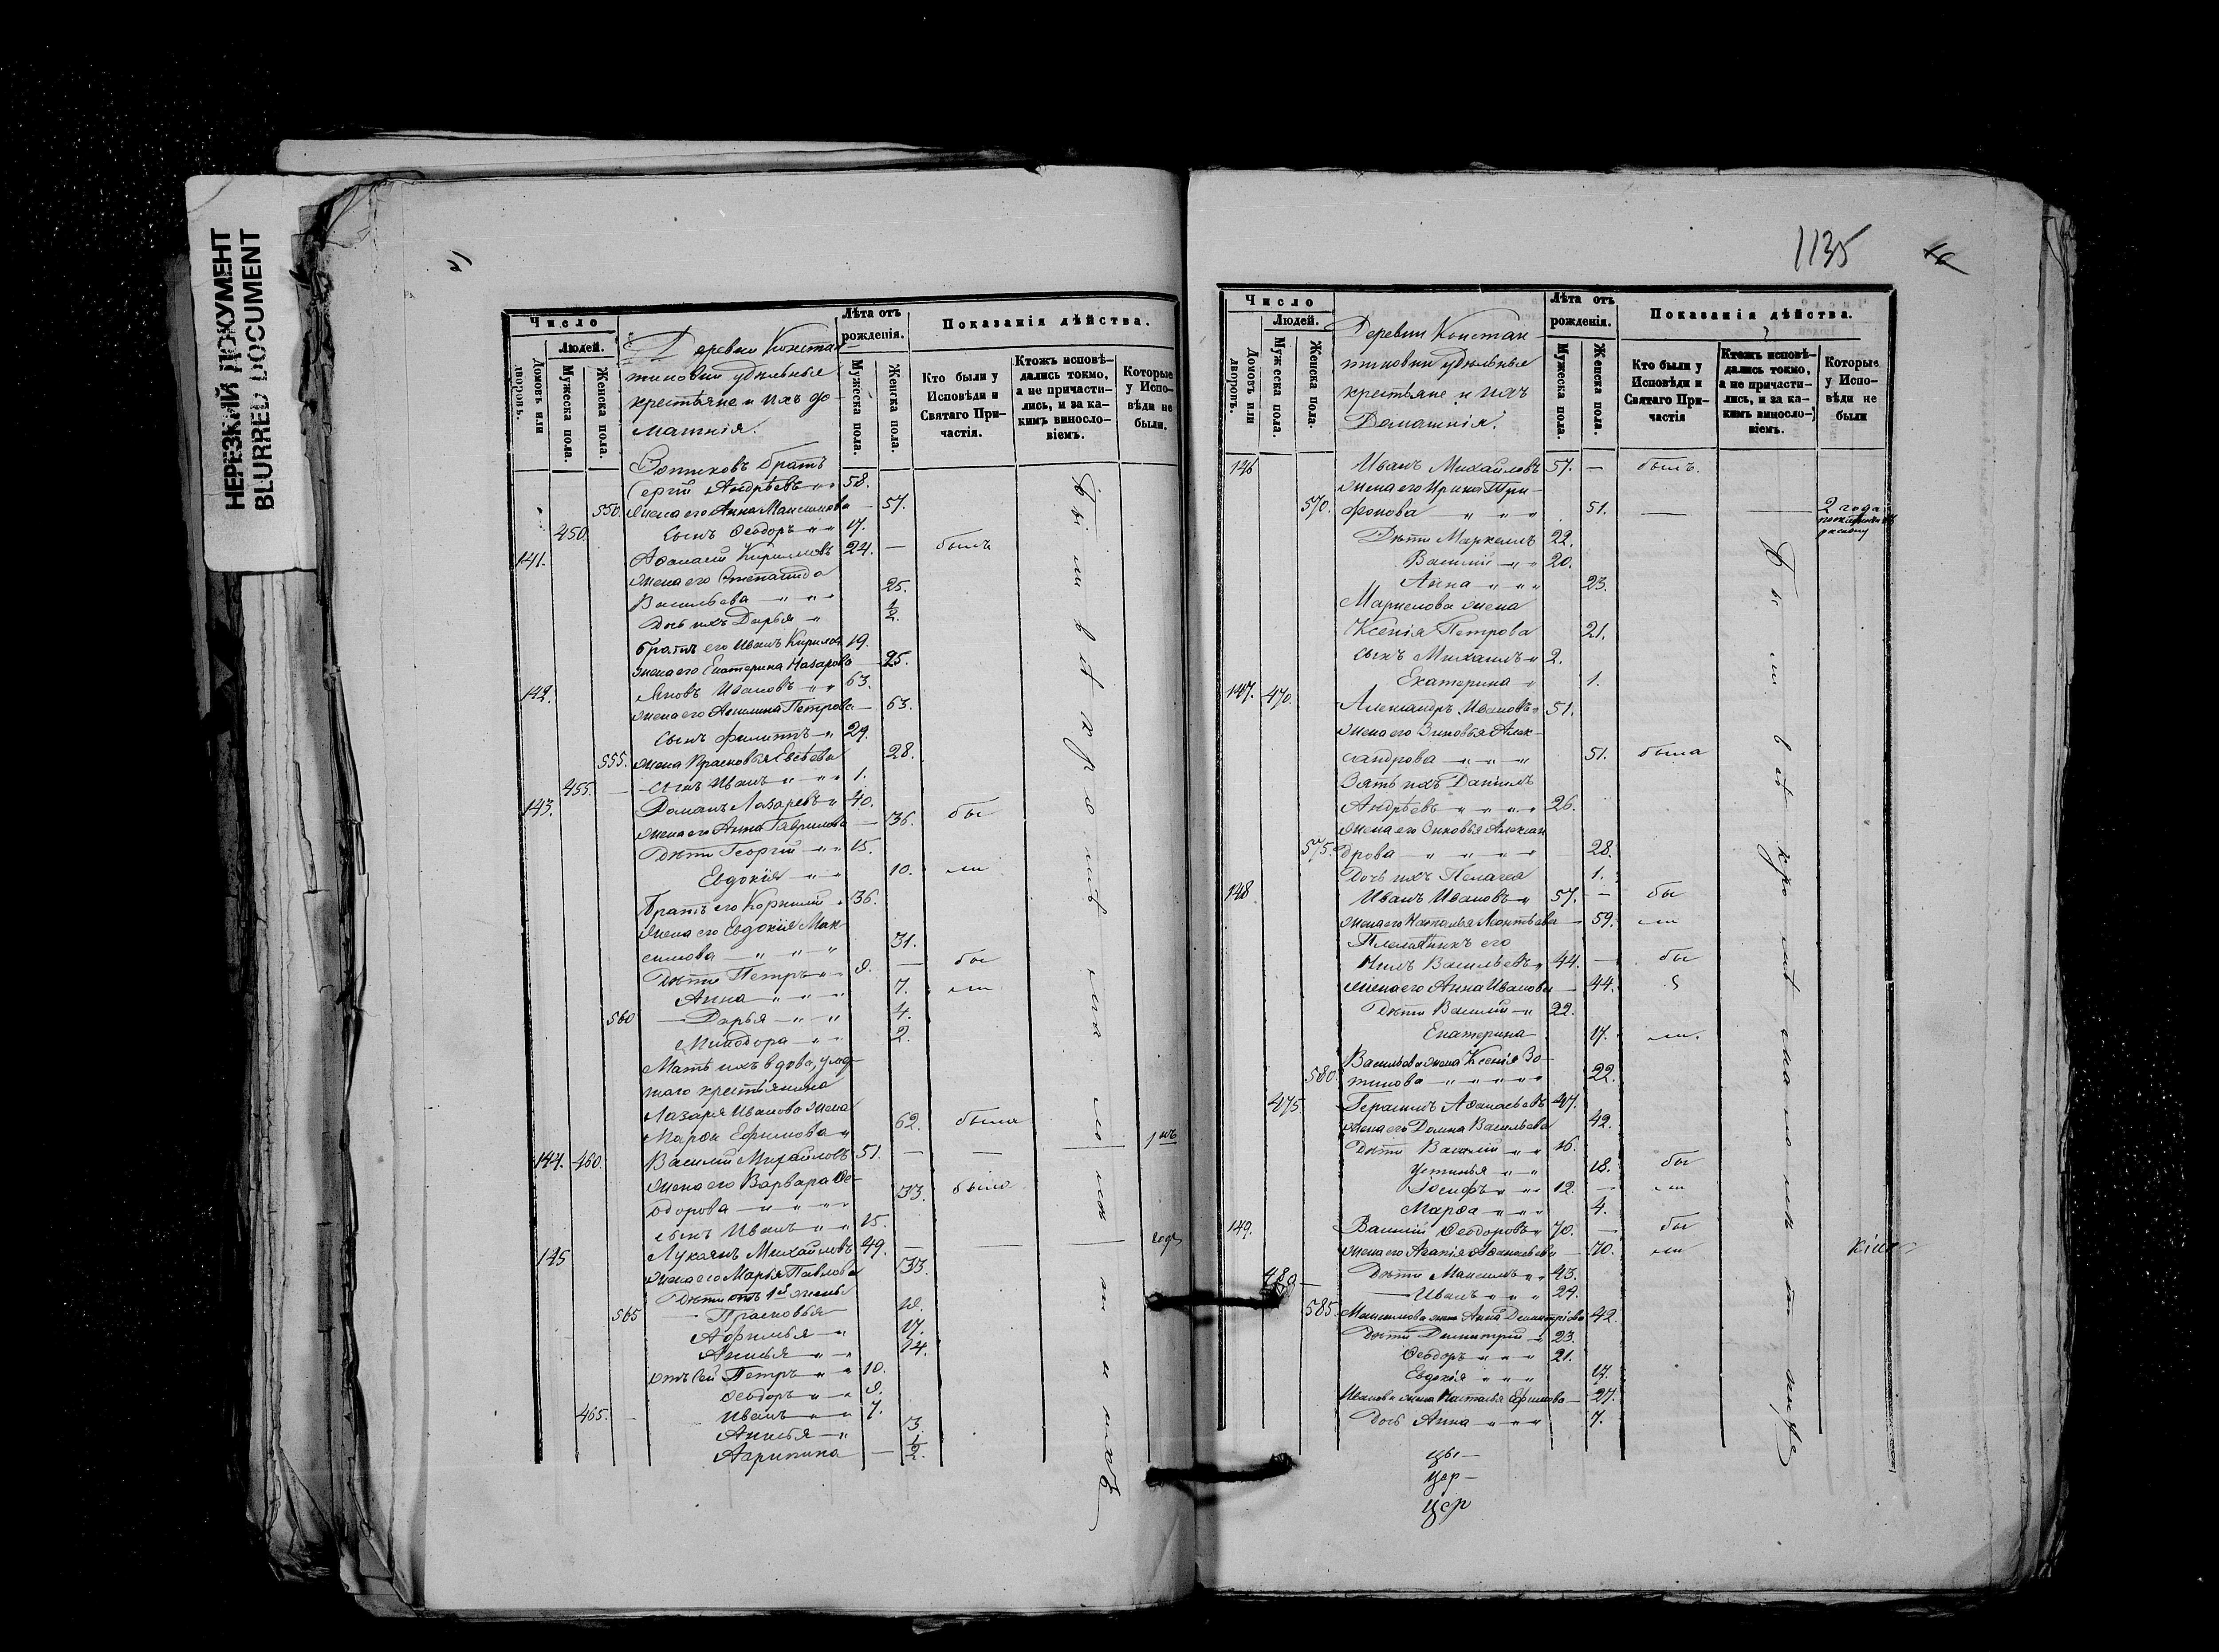 НЕРЕЗКИЙ ДОКУМЕНТ
BLURRED DOCUMENT
Число
Людей.
Домовъ или дворовъ.
Мужеска пола.
Женска пола.
Деревни Констан-
тиновки удѣльные
крестьяне и ихъ до-
машнія.
Лѣта отъ рожденія.
Мужеска пола.
Женска пола.
Показанія дѣйства.
Кто были у Исповѣди и Святаго Причастія.
Ктожъ исповѣдались токмо, а не причастились, и за какимъ винословіемъ.
Которые у Исповѣди не были.
Зотиковъ братъ
Сергій Андреевъ 58.
550. жена его Анна Максимова 57.
450. сынъ Ѳеодоръ 17.
141. Аѳанасій Кириловъ 24. — былъ
жена его Степанида
Васильева 25.
Дочь ихъ Дарья ½.
братъ его Иванъ Кириловъ 19.
жена его Екатерина Назарова 25.
142. Яковъ Ивановъ 63.
жена его Акилина Петрова 63.
сынъ Филиппъ 29.
555. жена Прасковья Евсѣева 28.
455. сынъ Иванъ 1.
143. Романъ Лазаревъ 40.
жена его Анна Гаврилова 36. бы
Дѣти Георгій 15.
Евдокія 10. ли
братъ его Корнилій 36.
жена его Евдокія Мак-
симова 31.
Дѣти Петръ 9. — бы
Анна 7. ли
560 Дарья 4.
Минодора 2.
Мать ихъ вдова,
крестьянина
Лазаря Иванова жена
Марѳа Ефимова 62. была
144. 460. Василій Михайловъ 51. — —
жена его Варвара Ѳе-
одорова 33. была
сынъ Иванъ 15.
145 Лукаянъ Михайловъ 49. —
жена его Марья Павлова 33.
Дѣти отъ 1й жены
565 Прасковья
Аѳимья 17.
Анисья 14.
отъ сей Петръ 10.
Ѳеодоръ 9.
465. Иванъ 7.
Анисья 3.
Агрипина — ½.
1135
Число
Людей.
Домовъ или дворовъ.
Мужеска пола.
Женска пола.
Деревни Констан-
тиновки удѣльные
крестьяне и ихъ
Домашнія.
Лѣта отъ рожденія.
Мужеска пола.
Женска пола.
Показанія дѣйства.
Кто были у Исповѣди и Святаго Причастія
Ктожъ исповѣдались токмо, а не причастились, и за какимъ винословіемъ.
Которые у Исповѣди не были
146 Иванъ Михайловъ 57. — былъ.
жена его Ирина Три-
570. фонова 51. — — 2 года
Дѣти Маркелъ 22.
Василій 20.
Анна 23.
Маркелова жена
Ксенія Петрова 21.
сынъ Михаилъ 2.
Екатерина 1.
147. 470. Александръ Ивановъ 51.
жена его Зиновья Алек-
сандрова 51. была
Зять ихъ Даніилъ
Андреевъ 26.
жена его Зиновья Алексан
575. дрова 28.
Дочь ихъ Пелагея 1.
148 Иванъ Ивановъ 57. — бы
жена его Наталья Леонтьева 59. ли
Племянникъ его
Нилъ Васильевъ 44. — бы
жена его Анна Иванова 44.
Дѣти Василій 22.
Екатерина 17. ли.
Васильева жена Ксенія Зо-
580. тикова 22.
475. Герасимъ Аѳанасьевъ 47.
жена его Домна Васильева 42.
Дѣти Василій 16.
Устинья 18. бы
Іосифъ 12. — ли
Марѳа 4.
149. Василій Ѳеодоровъ 70. — бы
жена его Агапія Аѳанасьева 70. ли
480 Дѣти Максимъ 43.
Иванъ 29.
585. Максимова жена Анна Димитріева 42.
Дѣти Димитрій 23.
Ѳеодоръ 21.
Евдокія 17.
Иванова жена Наталья Ефимова 27.
Дочь Анна 7.